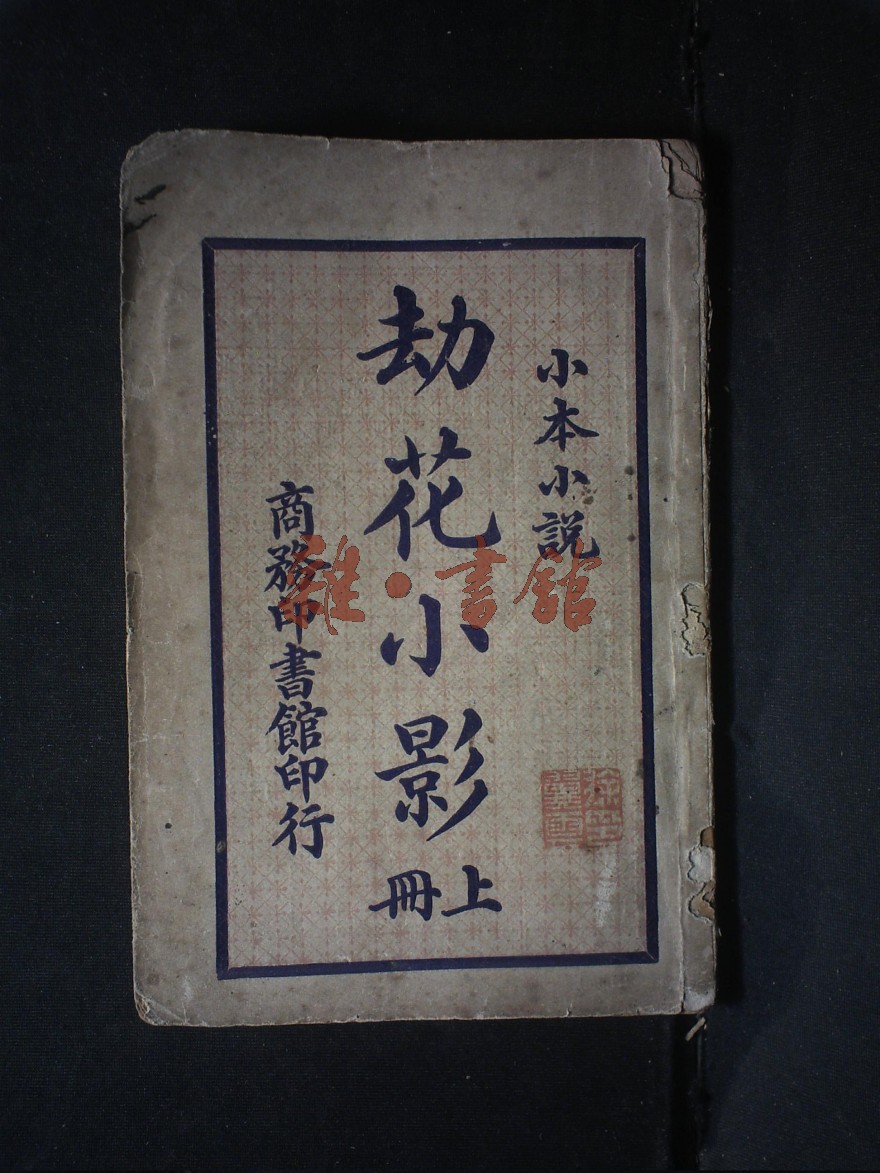 小本小説
劫花小影
上冊
商務印書館印行
雜·書館